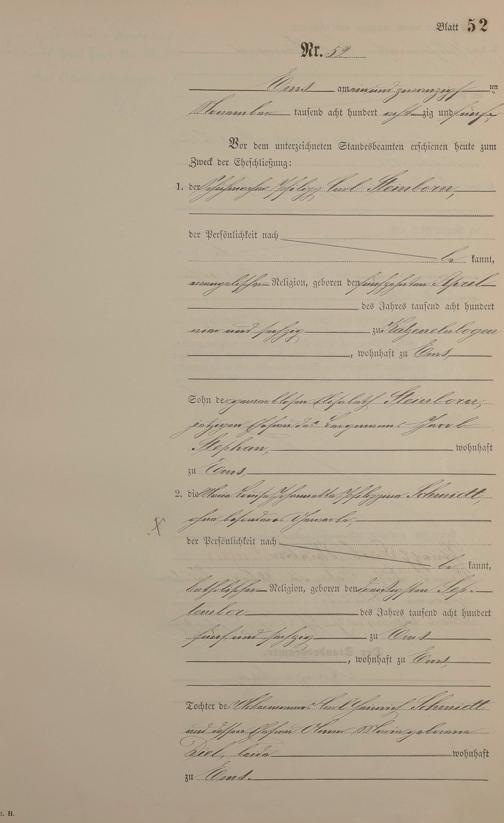 Blatt 52
Nr. 52
Ems am ein und zwanzigsten
November tausend acht hundert achtzig und fünf
Vor dem unterzeichneten Standesbeamten erschienen heute zum
Zweck der Eheschließung:
1. der Schuhmacher Philipp Carl Steinborn,
der Persönlichkeit nach
be kannt,
evangelischer Religion, geboren den fünfzehnten April
des Jahres tausend acht hundert
neun und fünfzig zu Katzenelnbogen
, wohnhaft zu Ems
Sohn der gewerblosen Elisabeth Steinborn,
jetzigen Ehefrau des Bergmanns Jacob
Stephan, wohnhaft
zu Ems
2. die Maria Louise Philippina Schmidt,
ohne besonderes Gewerbe,
der Persönlichkeit nach
be kannt,
katholischer Religion, geboren den Sep-
tember des Jahres tausend acht hundert
fünf und sechzig zu Ems
, wohnhaft zu Ems,
Tochter des Carl Heinrich Schmidt
und dessen Ehefrau Maria geborene
Diel, beide wohnhaft
zu Ems